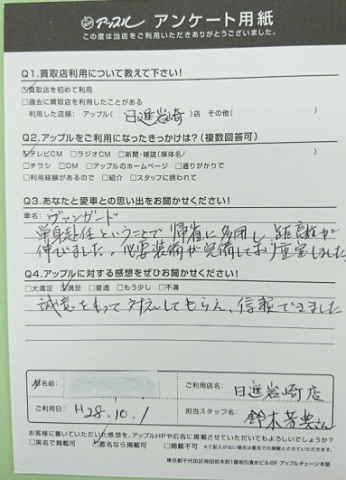 アップル アンケート用紙
この度は当店をご利用いただきありがとうございました。
Q1.買取店利用について教えて下さい!
☑買取店を初めて利用
□過去に買取店を利用したことがある
利用した店舗: アップル( 日進岩崎 )店 その他( )
Q2.アップルをご利用になったきっかけは?(複数回答可)
☑テレビCM □ラジオCM □新聞・雑誌(媒体名/ )
□チラシ □DM □アップルのホームページ □通りがかりで
□利用経験があるので □紹介 □スタッフに誘われて
Q3.あなたと愛車との思い出をお聞かせください!
車名: ヴァンガード
単身赴任ということで帰省に多用し、距離が
伸びました。必要装備が完備しており重宝しました
Q4.アップルに対する感想をぜひお聞かせください!
□大満足 ☑満足 □普通 □もう少し □不満
誠意をもって対応してもらえ、信頼できました
お名前:
ご利用店名: 日進岩崎店
ご利用日: H28.10.1
担当スタッフ名: 鈴木さん
お客様に書いていただいた感想を、アップルHPや広告に掲載させていただいてもよろしいでしょうか?
□実名で掲載可 ☑匿名なら掲載可
東京都千代田区神田岩本町1番地5清水ビル6F アップルチェーン本部